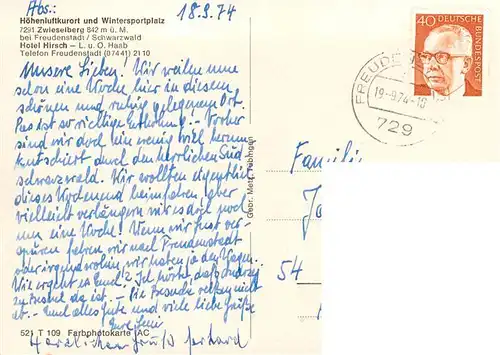 Abs.: 18.9.74
Höhenluftkurort und Wintersportplatz
7291 Zwieselberg 842 m ü. M.
bei Freudenstadt / Schwarzwald
Hotel Hirsch – L. u. O. Haab
Telefon Freudenstadt (07441) 2110
Unsere Lieben! Wir weilen nun
schon eine Woche hier in diesem
schönen und ruhig gelegenen Ort.
Das ist so richtige Erholung! Vorher
sind wir doch ein wenig viel herum
kutschiert durch den herrlichen Süd
schwarzwald. Wir wollten eigentlich
dieses Wochenend heimfahren aber
vielleicht verlängern wir es doch noch
um eine Woche! Wenn wir Lust ver-
spüren fahren wir nach Freudenstadt
oder irgendwohin, wir haben ja den Wagen.
Wie ergeht es Euch? Ich hörte, daß
zu Besuch da ist. – Die Freunde nicht
ab. – Euch alles Gute und viele liebe Grüße
Eure
Herzlichen Gruß Gerhard
521 T 109 Farbphotokarte AC
Gebr. Metz, Tübingen
40 DEUTSCHE BUNDESPOST
FREUDENS
19.-9.74-18
729
Famili
54